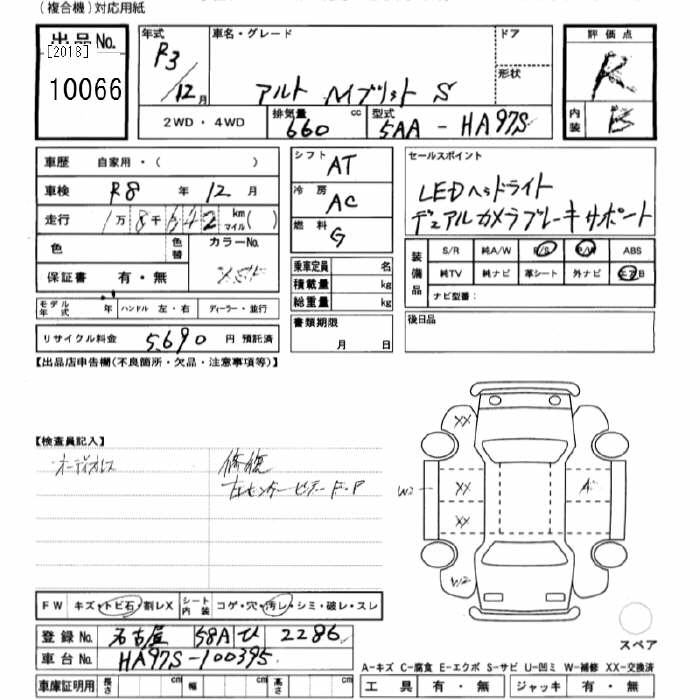 (複合機)対応用紙
出品No.
[2018]
10066
年式
R3
/12月
車名・グレード
アルト ハイブリット S
ドア
形状
評価点
R
内装
B
2WD・4WD
排気量
660
cc
型式
5AA-HA97S
車歴 自家用・( )
車検 R8 年 12 月
走行 1万8千642 km マイル( )
色
色替
カラーNo.
保証書 有・無
モデル年式 年 ハンドル 左・右 ディーラー・並行
リサイクル料金 5,690 円 預託済
シフト AT
冷房 AC
燃料 G
乗車定員 名
積載量 kg
総重量 kg
書類期限
月 日
セールスポイント
LEDヘッドライト
デュアルカメラブレーキサポート
装備品
S/R 純A/W P/S P/W ABS
純TV 純ナビ 革シート 外ナビ エアB
ナビ型番:
後日品
【出品店申告欄(不良箇所・欠品・注意事項等)】
【検査員記入】
オーディオレス
修復
左センターピラー F・P
XX
W2
XX
A
XX
W2
スペア
FW キズ・トビ石・割レX
シート内装 コゲ・穴・汚レ・シミ・破レ・スレ
登録No. 名古屋 58A ひ 2286
車台No. HA97S-100395
車庫証明用 長さ cm 幅 cm 高さ cm
A-キズ C-腐食 E-エクボ S-サビ U-凹ミ W-補修 XX-交換済
工具 有・無 ジャッキ 有・無